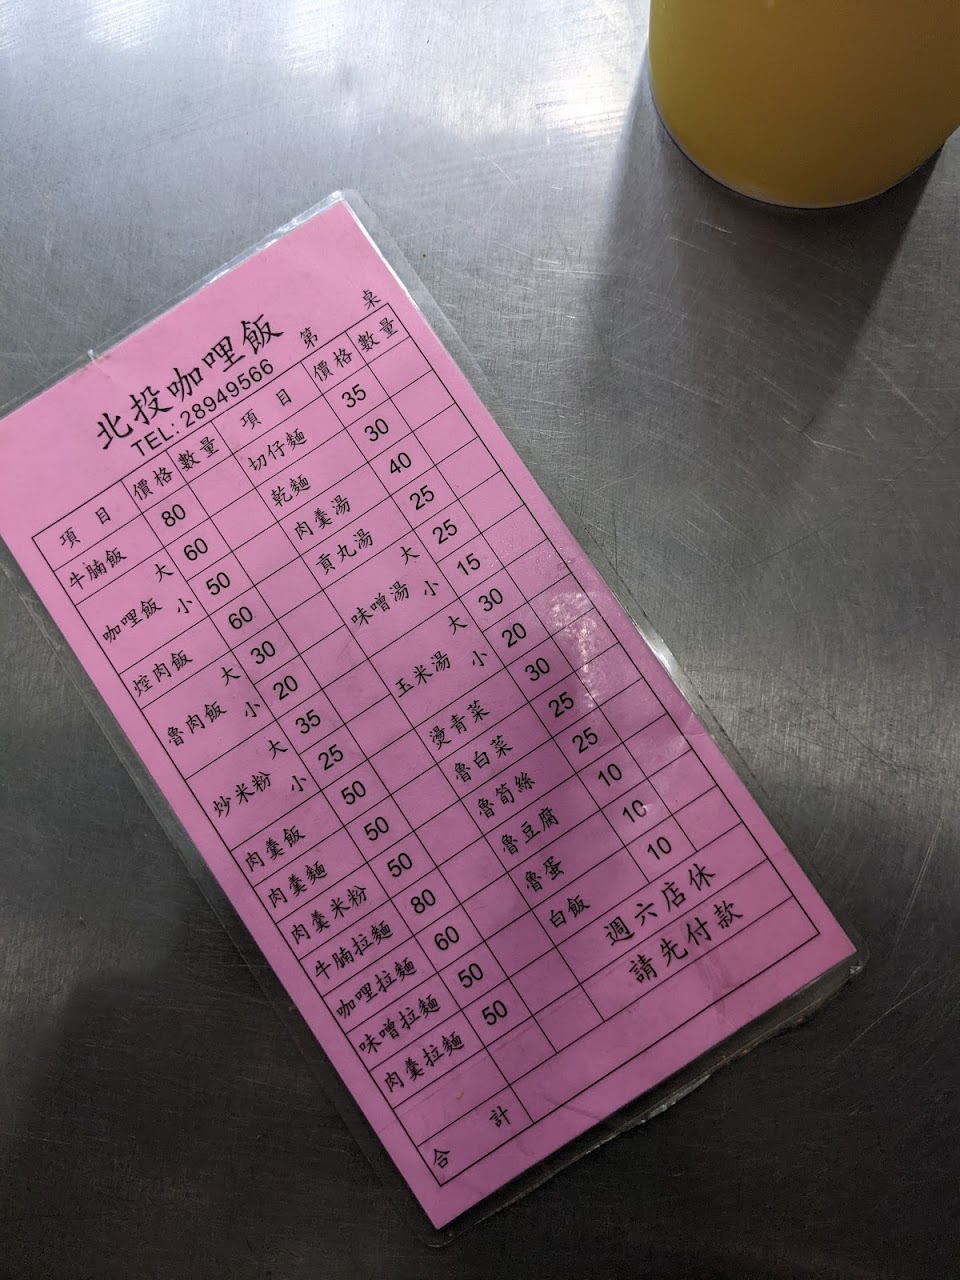 北投咖哩飯
TEL: 28949566 第 桌
項 目 價格 數量 項 目 價格 數量
牛腩飯 80
咖哩飯 大 60
小 50
焢肉飯 60
魯肉飯 大 30
小 20
炒米粉 大 35
小 25
肉羹飯 50
肉羹麵 50
肉羹米粉 50
牛腩拉麵 80
咖哩拉麵 60
味噌拉麵 50
肉羹拉麵 50
切仔麵 35
乾麵 30
肉羹湯 40
貢丸湯 25
味噌湯 大 25
小 15
玉米湯 大 30
小 20
燙青菜 30
魯白菜 25
魯筍絲 25
魯豆腐 10
魯蛋 10
白飯 10
週六店休
請先付款
合 計